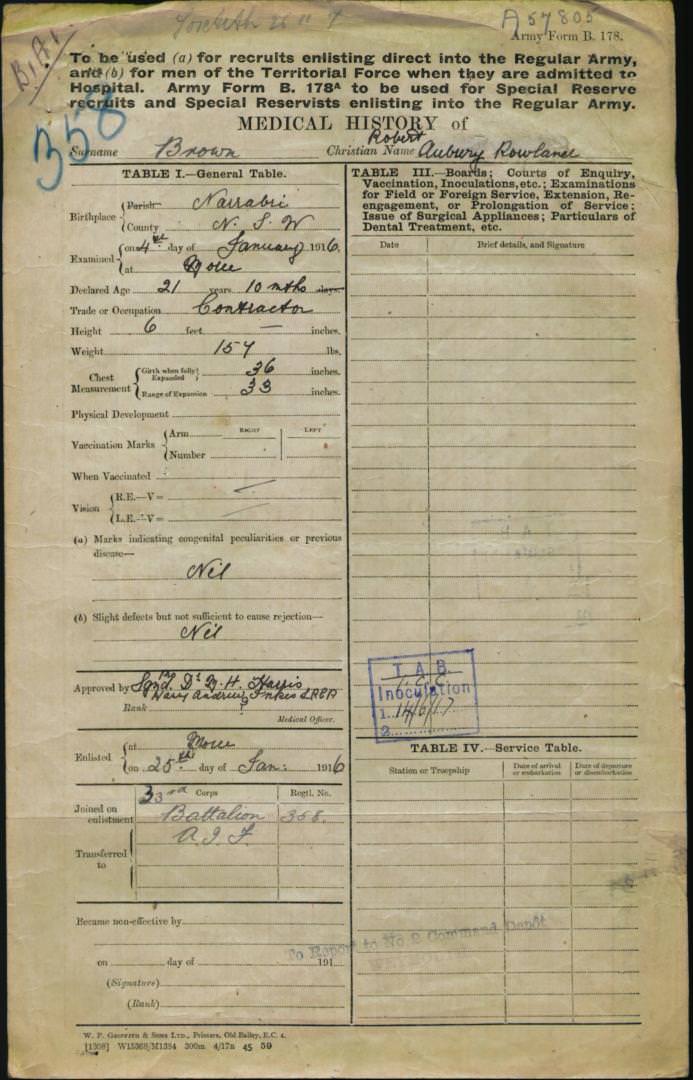 26 11
A57805
Army Form B. 178.
B.1.A.1.
To be used (a) for recruits enlisting direct into the Regular Army,
and (b) for men of the Territorial Force when they are admitted to
Hospital. Army Form B. 178A to be used for Special Reserve
recruits and Special Reservists enlisting into the Regular Army.
358
MEDICAL HISTORY of
Robert
Surname Brown Christian Name Aubury Rowland
TABLE I.—General Table.
Birthplace Parish Narrabri
County N. S. W
Examined on 4th day of January 1916.
at Moree
Declared Age 21 years 10 mths days.
Trade or Occupation Contractor
Height 6 feet — inches.
Weight 157 lbs.
Chest Measurement Girth when fully Expanded 36 inches.
Range of Expansion 33 inches.
Physical Development
RIGHT LEFT
Vaccination Marks Arm
Number
When Vaccinated
Vision R.E.—V=
L.E.—V=
(a) Marks indicating congenital peculiarities or previous
disease—
Nil
(b) Slight defects but not sufficient to cause rejection—
Nil
Approved by Sgnd. Dr H. Harris
Rank
Medical Officer.
Enlisted at Moree
on 25th day of Jan: 1916
Corps Regtl. No.
Joined on enlistment 33rd Battalion 358.
A.I.F.
Transferred to
Became non-effective by
on day of 191
(Signature)
(Rank)
TABLE III.—Boards; Courts of Enquiry,
Vaccination, Inoculations, etc.; Examinations
for Field or Foreign Service, Extension, Re-
engagement, or Prolongation of Service;
Issue of Surgical Appliances; Particulars of
Dental Treatment, etc.
Date Brief details, and Signature
T.A.B.
1. C.C.
Inoculation
1. 14/6/17
2.
TABLE IV.—Service Table.
Station or Troopship Date of arrival or embarkation Date of departure or disembarkation
To Report to No 2 Command Depôt
W. P. GRIFFITH & SONS LTD., Printers, Old Bailey, E.C. 4.
[1308] W15368/M1384 300m 4/17n 45 59